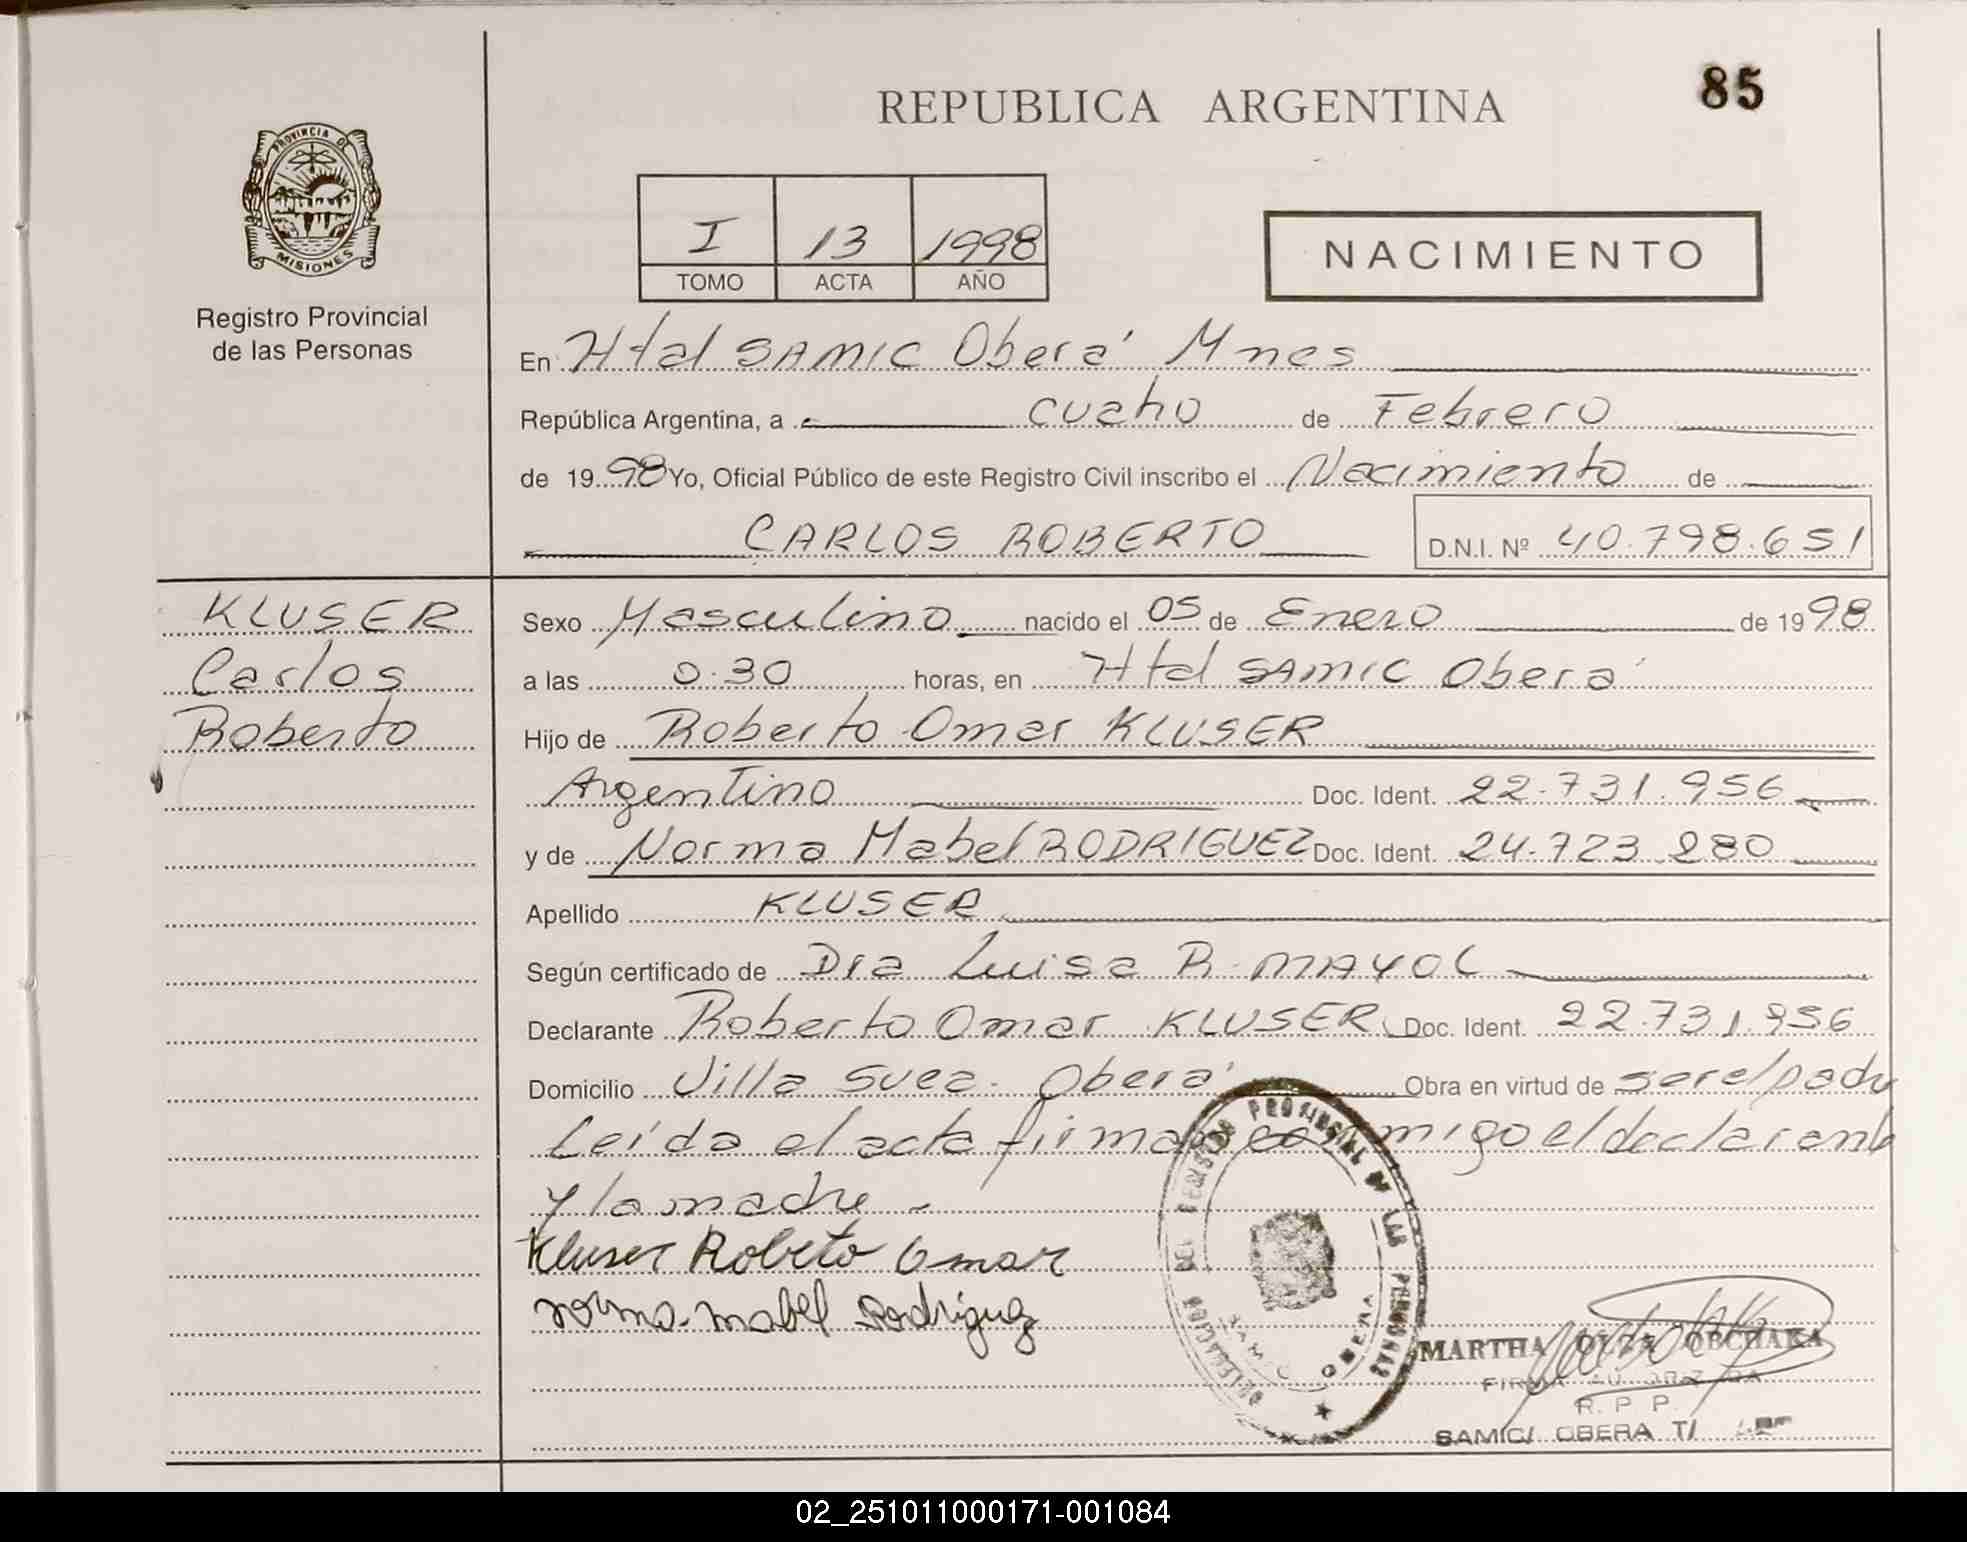 85
REPUBLICA ARGENTINA
PROVINCIA DE
MISIONES
Registro Provincial
de las Personas
I 13 1998
TOMO ACTA AÑO
NACIMIENTO
En Htal SAMIC Oberá Mnes
República Argentina, a cuatro de Febrero
de 1998 Yo, Oficial Público de este Registro Civil inscribo el Nacimiento de
CARLOS ROBERTO D.N.I. Nº 40.798.651
KLUSER
Carlos
Roberto
Sexo Masculino nacido el 05 de Enero de 1998
a las 0.30 horas, en Htal SAMIC Oberá
Hijo de Roberto Omar KLUSER
Argentino Doc. Ident. 22.731.956
y de Norma Mabel RODRIGUEZ Doc. Ident. 24.723.280
Apellido KLUSER
Según certificado de Dra Luisa R. MAYOL
Declarante Roberto Omar KLUSER Doc. Ident. 22.731.956
Domicilio Villa Svea. Oberá Obra en virtud de ser el padre
Leída el acta firman conmigo el declarante
y la madre
Kluser Robeto Omar
Norma Mabel Rodriguez
DELEGACION DEL REGISTRO PROVINCIAL DE LAS PERSONAS
SAMIC OBERA
MARTHA OBCHAKA
R. P. P.
SAMIC/ OBERA T/
02_251011000171-001084